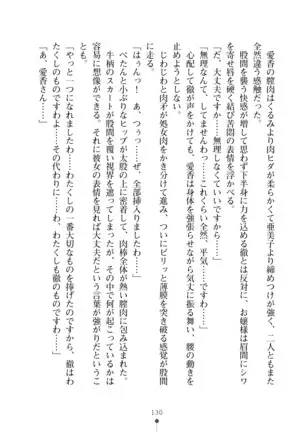 愛香の膣肉はくるみより肉ヒダが多く、亜美子より締めつけが強く、二人ともまた
全然違う感触だった。
股間を襲う快感が増して思わず下半身に力を込める徹とは反対に、お嬢様は眉間にシワ
を寄せ唇を硬く結び苦悶の表情を浮かべる。
「だ、大丈夫ですか……無理しなくていいですから……」
「無理なんて、してませんわっ……これくらい全然、平気……ですわ……」
心配して徹が声をかけても、愛香は身体を強張らせながら気丈に振る舞い、腰の動きを
じわじわと肉矛が処女肉をかき分けて進み、ついにピリッと薄膜を突き破る感覚が股間
に走る。
「はぅんっ！　あ、つぅっ……ぜ、全部挿入りましたわ……」
ぺたんと小ぶりなヒップが太股の上に密着して、肉棒全体が熱い膣肉に包み込まれた。
牛柄のスカートが股間を覆い視界を遮ってしまったが、その中で何が起こっているかは
容易に想像ができる。それに彼女の表情を見れば大丈夫だという言葉が強がりだというこ
とも。
「やっと……一つになれましたわね……わたくしの初めてを捧げましたわ……徹はわ
たくしの一番大切なものを捧げたのですわ……その代わりに……わたくしも徹のもの
ですわ……」
「あ、愛香さん……」
130